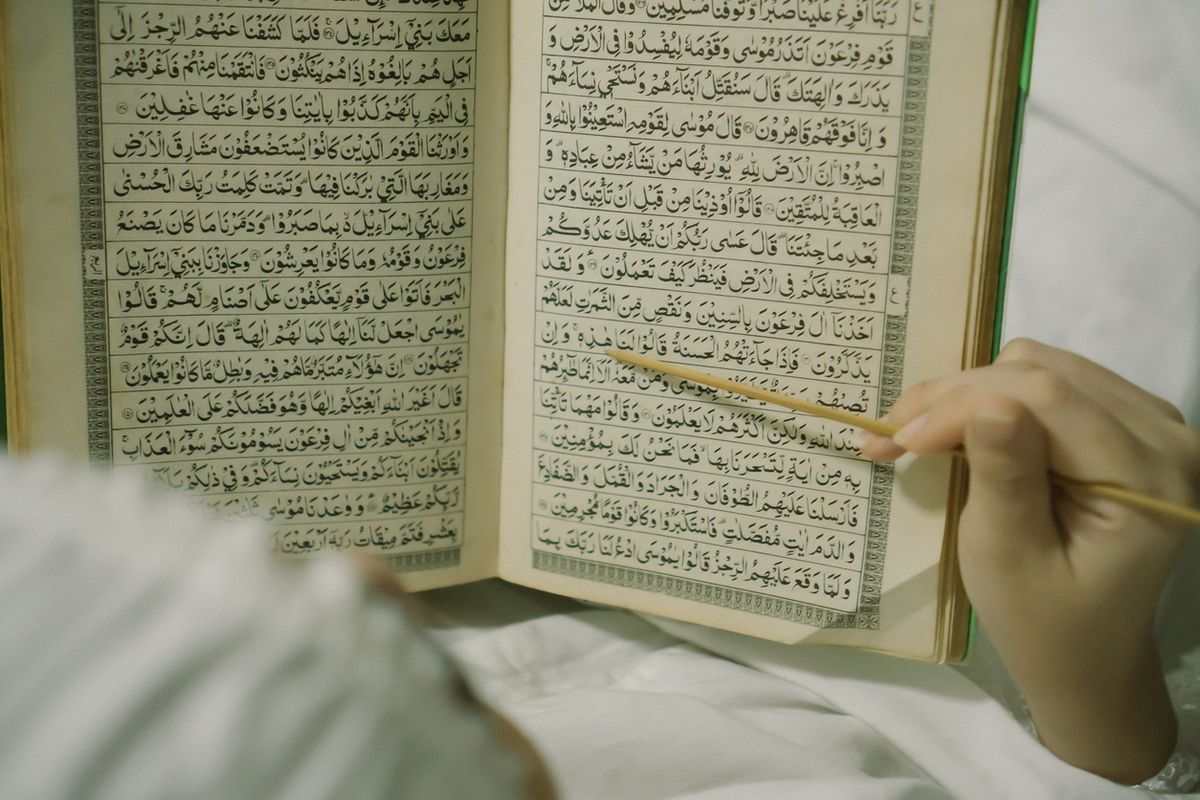 رَبَّنَا أَفْرِغْ عَلَيْنَا صَبْرًا وَّتَوَفَّنَا مُسْلِمِيْنَ ۝ وَقَالَ الْمَلَاُ مِنْ
قَوْمِ فِرْعَوْنَ اَتَذَرُ مُوْسٰى وَقَوْمَهٗ لِيُفْسِدُوْا فِى الْاَرْضِ وَ
يَذَرَكَ وَاٰلِهَتَكَ ۚ قَالَ سَنُقَتِّلُ اَبْنَآءَهُمْ وَنَسْتَحْىٖ نِسَآءَهُمْ ۚ
وَ اِنَّا فَوْقَهُمْ قَاهِرُوْنَ ۝ قَالَ مُوْسٰى لِقَوْمِهِ اسْتَعِيْنُوْا بِاللّٰهِ وَ
اصْبِرُوْا ۚ اِنَّ الْاَرْضَ لِلّٰهِ ۙ يُوْرِثُهَا مَنْ يَّشَآءُ مِنْ عِبَادِهٖ ۗ وَ
الْعَاقِبَةُ لِلْمُتَّقِيْنَ ۝ قَالُوْٓا اُوْذِيْنَا مِنْ قَبْلِ اَنْ تَاْتِيَنَا وَمِنْ
بَعْدِ مَا جِئْتَنَا ۗ قَالَ عَسٰى رَبُّكُمْ اَنْ يُّهْلِكَ عَدُوَّكُمْ
وَيَسْتَخْلِفَكُمْ فِى الْاَرْضِ فَيَنْظُرَ كَيْفَ تَعْمَلُوْنَ ۝ وَلَقَدْ
اَخَذْنَآ اٰلَ فِرْعَوْنَ بِالسِّنِيْنَ وَنَقْصٍ مِّنَ الثَّمَرٰتِ لَعَلَّهُمْ
يَذَّكَّرُوْنَ ۝ فَاِذَا جَآءَتْهُمُ الْحَسَنَةُ قَالُوْا لَنَا هٰذِهٖ ۚ وَاِنْ
تُصِبْهُمْ بِمُوْسٰى وَمَنْ مَّعَهٗ ۗ اَلَآ اِنَّمَا طٰٓئِرُهُمْ
عِنْدَ اللّٰهِ وَلٰكِنَّ اَكْثَرَهُمْ لَا يَعْلَمُوْنَ ۝ وَقَالُوْا مَهْمَا تَاْتِنَا
بِهٖ مِنْ اٰيَةٍ لِّتَسْحَرَنَا بِهَا ۙ فَمَا نَحْنُ لَكَ بِمُؤْمِنِيْنَ ۝
فَاَرْسَلْنَا عَلَيْهِمُ الطُّوْفَانَ وَالْجَرَادَ وَالْقُمَّلَ وَالضَّفَادِعَ
وَالدَّمَ اٰيٰتٍ مُّفَصَّلٰتٍ ۗ فَاسْتَكْبَرُوْا وَكَانُوْا قَوْمًا مُّجْرِمِيْنَ ۝
وَلَمَّا وَقَعَ عَلَيْهِمُ الرِّجْزُ قَالُوْا يٰمُوْسَى ادْعُ لَنَا رَبَّكَ بِمَا
ع
ع
مَعَكَ بَنِىْٓ اِسْرَآءِيْلَ ۝ فَلَمَّا كَشَفْنَا عَنْهُمُ الرِّجْزَ اِلٰٓى
اَجَلٍ هُمْ بَالِغُوْهُ اِذَا هُمْ يَنْكُثُوْنَ ۝ فَانْتَقَمْنَا مِنْهُمْ فَاَغْرَقْنٰهُمْ
فِى الْيَمِّ بِاَنَّهُمْ كَذَّبُوْا بِاٰيٰتِنَا وَكَانُوْا عَنْهَا غٰفِلِيْنَ ۝
وَاَوْرَثْنَا الْقَوْمَ الَّذِيْنَ كَانُوْا يُسْتَضْعَفُوْنَ مَشَارِقَ الْاَرْضِ
وَمَغَارِبَهَا الَّتِىْ بٰرَكْنَا فِيْهَا ۗ وَتَمَّتْ كَلِمَتُ رَبِّكَ الْحُسْنٰى
عَلٰى بَنِىْٓ اِسْرَآءِيْلَ ۙ بِمَا صَبَرُوْا ۗ وَدَمَّرْنَا مَا كَانَ يَصْنَعُ
فِرْعَوْنُ وَقَوْمُهٗ وَمَا كَانُوْا يَعْرِشُوْنَ ۝ وَجٰوَزْنَا بِبَنِىْٓ اِسْرَآءِيْلَ
الْبَحْرَ فَاَتَوْا عَلٰى قَوْمٍ يَّعْكُفُوْنَ عَلٰٓى اَصْنَامٍ لَّهُمْ ۚ قَالُوْا
يٰمُوْسَى اجْعَلْ لَّنَآ اِلٰهًا كَمَا لَهُمْ اٰلِهَةٌ ۗ قَالَ اِنَّكُمْ قَوْمٌ
تَجْهَلُوْنَ ۝ اِنَّ هٰٓؤُلَآءِ مُتَبَّرٌ مَّا هُمْ فِيْهِ وَبٰطِلٌ مَّا كَانُوْا يَعْمَلُوْنَ ۝
قَالَ اَغَيْرَ اللّٰهِ اَبْغِيْكُمْ اِلٰهًا وَّهُوَ فَضَّلَكُمْ عَلَى الْعٰلَمِيْنَ ۝
وَاِذْ اَنْجَيْنٰكُمْ مِّنْ اٰلِ فِرْعَوْنَ يَسُوْمُوْنَكُمْ سُوْٓءَ الْعَذَابِ ۚ
يُقَتِّلُوْنَ اَبْنَآءَكُمْ وَيَسْتَحْيُوْنَ نِسَآءَكُمْ ۗ وَفِىْ ذٰلِكُمْ
رَّبِّكُمْ عَظِيْمٌ ۝ وَوٰعَدْنَا مُوْسٰى
بِعَشْرٍ فَتَمَّ مِيْقَاتُ رَبِّهٖٓ اَرْبَعِيْنَ